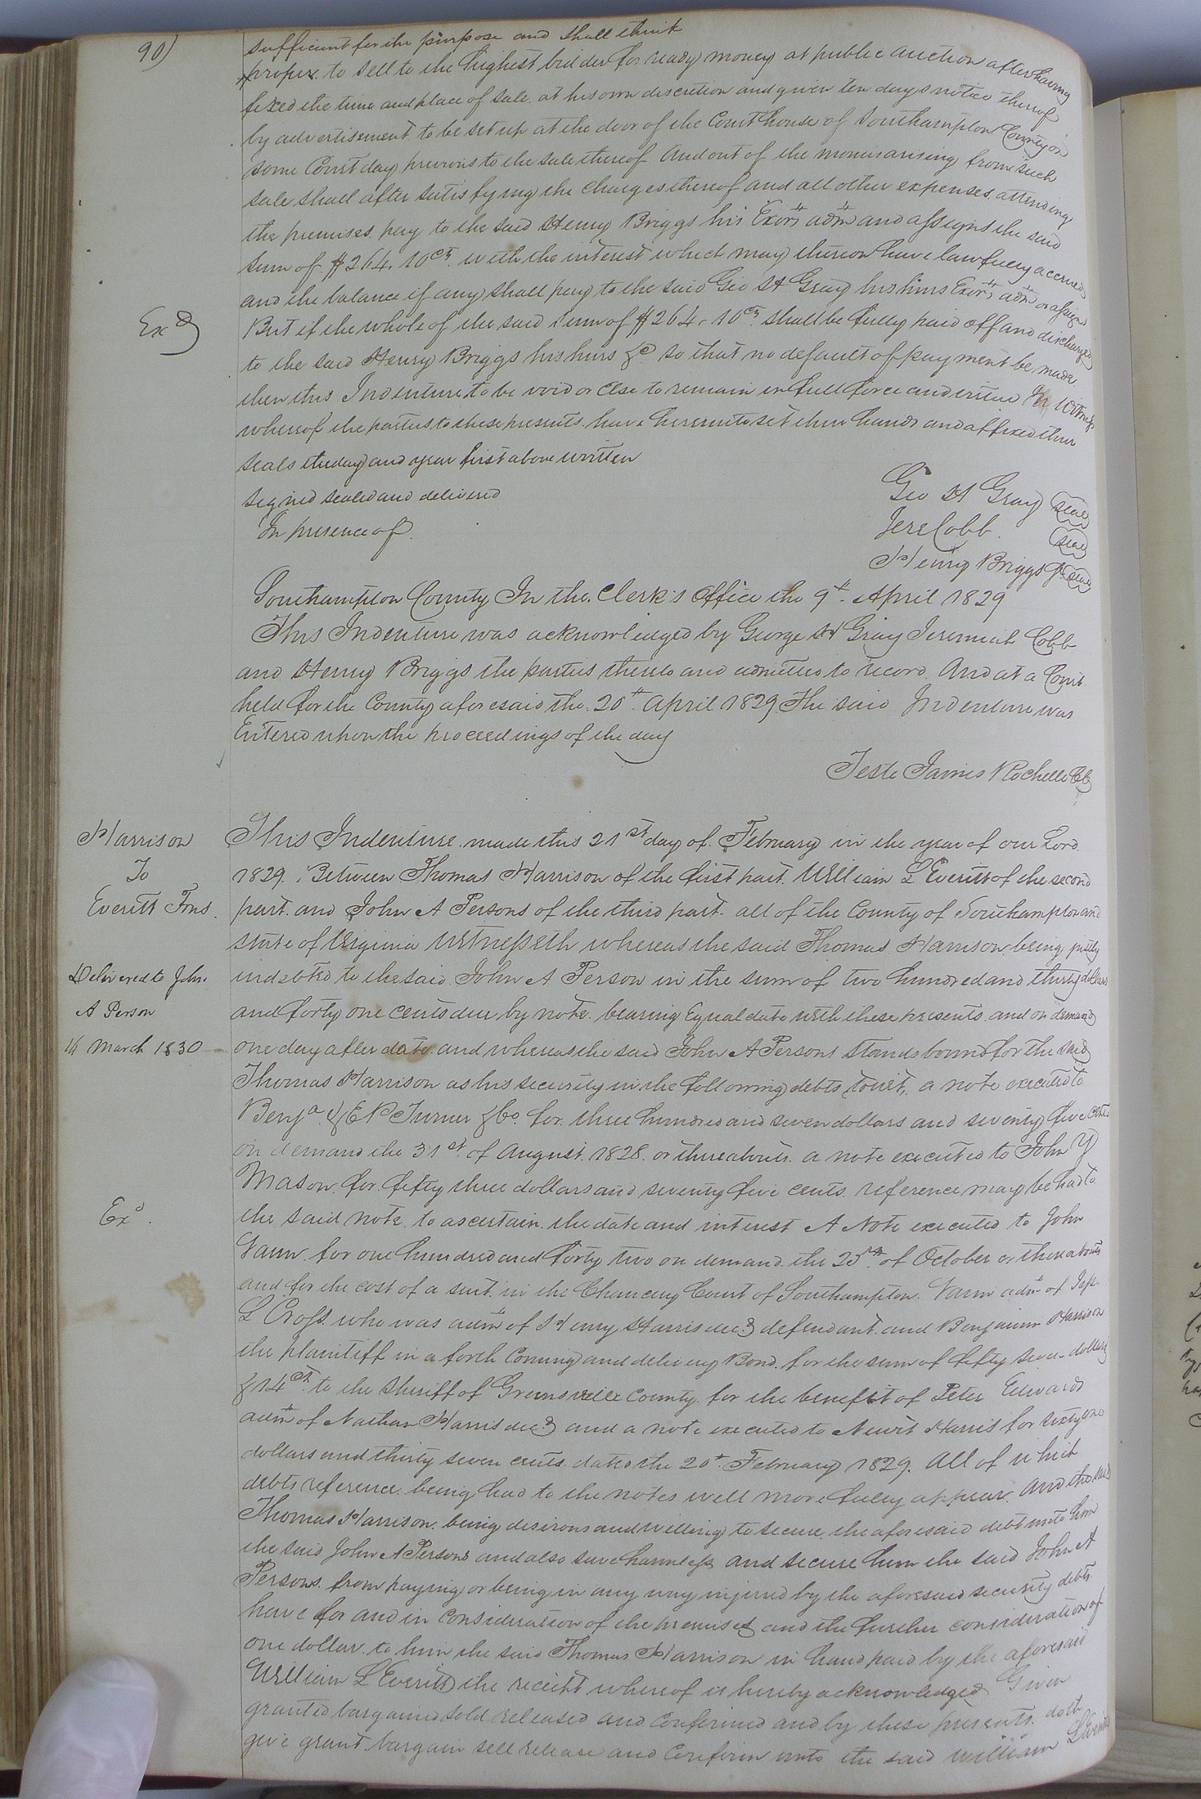 90)
sufficient for the purpose and shall think
proper to sell to the highest bidder for ready money at public auction after having
fixed the time and place of sale at his own discretion and given ten days notice thereof
by advertisement to be set up at the door of the Courthouse of Southampton County on
some Court day previous to the sale thereof And out of the monies arising from such
sale shall after satisfying the charges thereof and all other expenses attending
the premises pay to the said Henry Briggs his Exors adm and assigns the said
sum of $264.10cts with the interest which may thereon have lawfully accrued
and the balance if any shall pay to the said Geo H Gray his hiirs Exors adm or assigns
Exd
But if the whole of the said sum of $264.10cts shall be fully paid off and discharged
to the said Henry Briggs his hiirs &c so that no default of payment be made
then this Indenture to be void or Else to remain in full force and virtue In Witness
whereof the parties to these presents have hereunto set their hands and affixed their
seals the day and year first above written
Signed sealed and delivered
In presence of
Geo H Gray seal
Jere Cobb seal
Henry Briggs Jr seal
Southampton County In the Clerk's Office the 9th April 1829
This Indenture was acknowledged by George H Gray Jeremiah Cobb
and Henry Briggs the parties thereto and admitted to record And at a Court
held for the County aforesaid the 20th April 1829 The said Indenture was
Entered upon the proceedings of the day
Teste James Rochelle Clk
Harrison
To
Everitt Trus.
Delivered to John
A Person
14 March 1830
This Indenture made this 21st day of February in the year of our Lord
1829 Between Thomas Harrison of the first part William L Everitt of the second
part and John A Persons of the third part all of the County of Southampton and
state of Virginia Witnesseth whereas the said Thomas Harrison being justly
indebted to the said John A Person in the sum of two hundred and thirty dollars
and forty one cents due by note bearing Equal date with these presents and on demand
one day after date and whereas the said John A Persons stands bound for the said
Thomas Harrison as his security in the following debts towit, a note executed to
Benja & E P Turner & Co for three hundred and seven dollars and seventy five cents
on demand the 31st of August 1828 or thereabouts a note executed to John Y
Mason for fifty three dollars and seventy five cents reference may be had to
Exd.
the said note to ascertain the date and interest A Note executed to John
Vann for one hundred and forty two on demand the 25th of October or thereabouts
and for the cost of a suit in the Chancery Court of Southampton Vann adm of
L Croft who was adm of Henry Harris decd defendant and Benjamin Harrison
the plaintiff in a forth Coming and delivery Bond for the sum of fifty dollars
&14cts to the sheriff of Greensville County for the benefit of Peter Edwards
adm of Nathan Harris decd and a note executed to Newit Harris for sixty one
dollars and thirty seven cents dated the 20th February 1829. All of which
debts reference being had to the notes will more fully appear And the said
Thomas Harrison being desirous and willing to secure the aforesaid debt unto him
the said John A Persons and also save harmless and secure him the said John A
Persons from paying or being in any way injured by the aforesaid security debts
have for and in consideration of the premises and the further consideration of
one dollar to him the said Thomas Harrison in hand paid by the aforesaid
William L Everitt the reciept whereof is hereby acknowledged Given
granted bargained sold released and confirmed and by these presents doth
give grant bargain sell release and Confirm unto the said William L Everitt